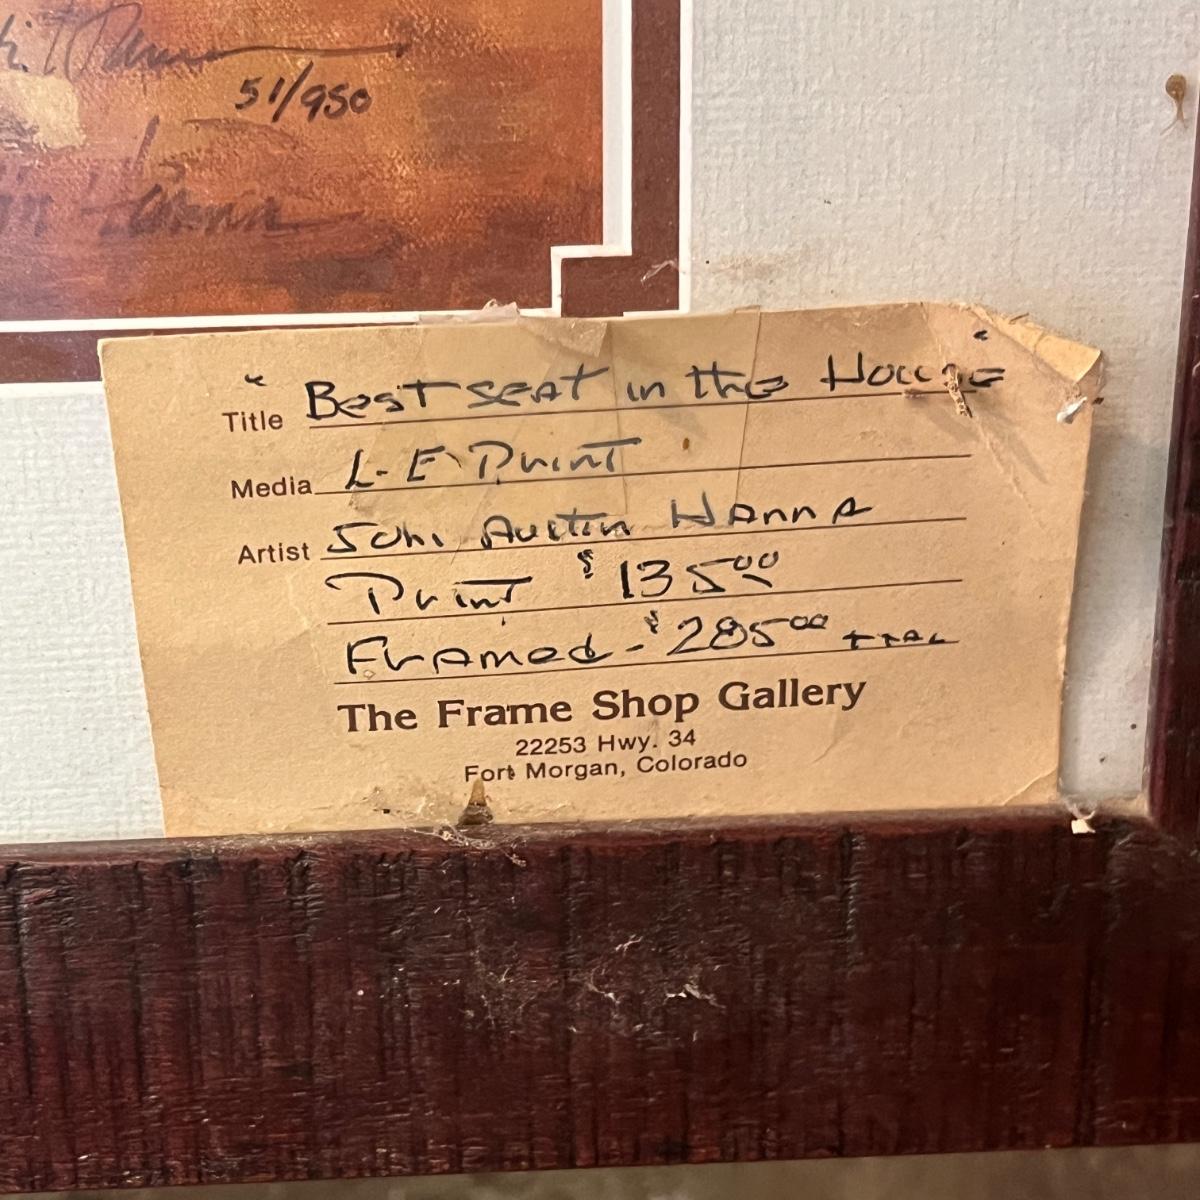 51/950
Hanna
Title "Best seat in the House"
Media L-E Print
Artist Austin Hanna
Print $135.00
Framed - $285.00 total
The Frame Shop Gallery
22253 Hwy. 34
Fort Morgan, Colorado